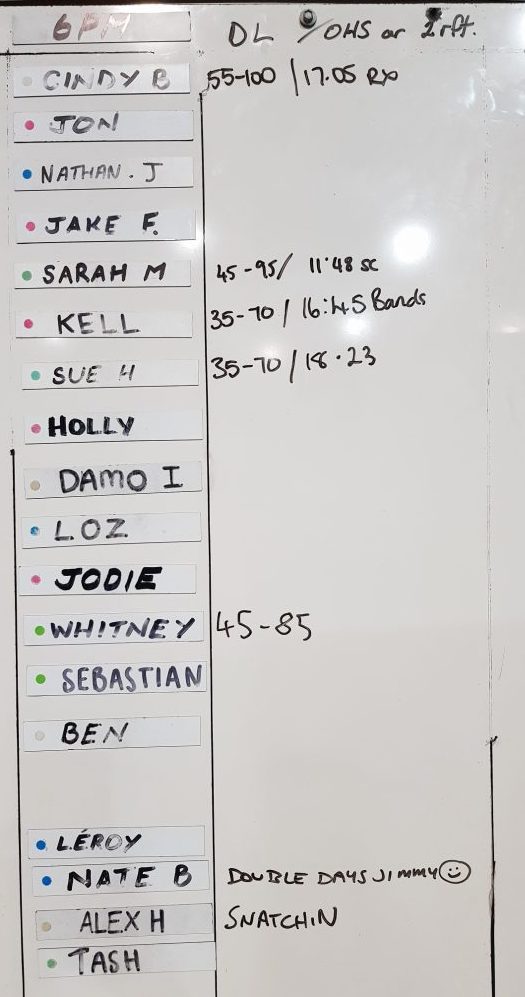 6PM DL / OHS or 2 rft.
CINDY B 55-100 / 17.05 RX
JON
NATHAN. J
JAKE F.
SARAH M 45-95/ 11:48 SC
KELL 35-70 / 16:45 Bands
SUE H 35-70 / 18.23
HOLLY
DAMO I
LOZ
JODIE
WHITNEY 45-85
SEBASTIAN
BEN
LÉROY
NATE B DOUBLE DAYS JIMMY☺
ALEX H SNATCHIN
TASH